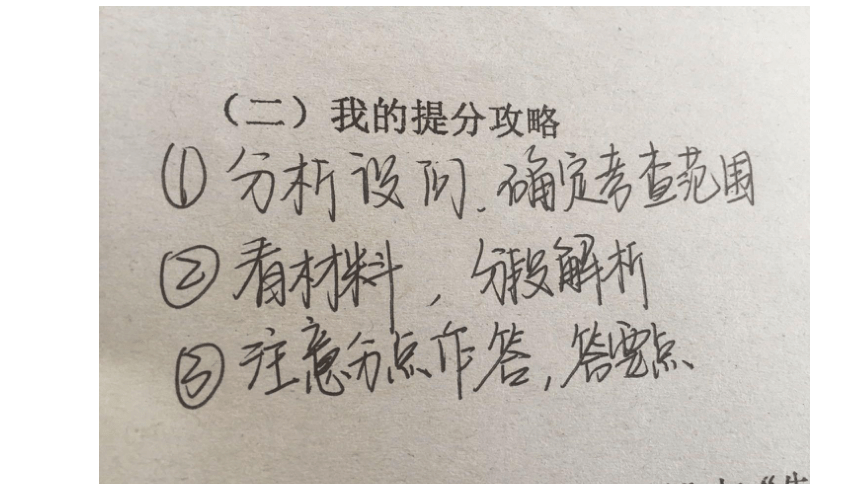 （二）我的提分攻略
① 分析设问、确定考查范围
② 看材料，分段解析
③ 注意分点作答，答要点、